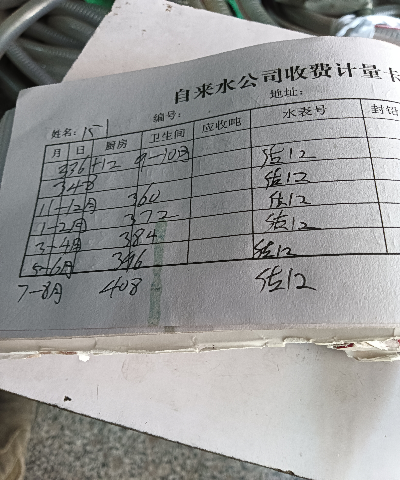 自来水公司收费计量卡
姓名: 编号: 地址:
月 日 厨房 卫生间 应收吨 水表号 封铅
336+12 9-10月 估12
348 估12
11-12月 360 估12
1-2月 372 估12
3-4月 384
5-6月 396 估12
7-8月 408 估12